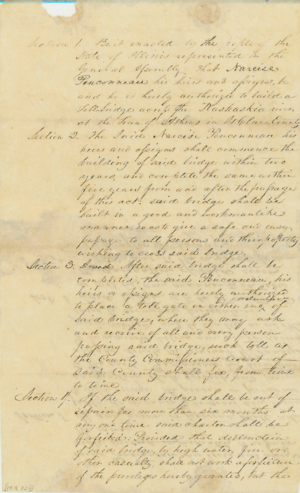 Section 1. Be it enacted by the people of the
State of Illinois represented in the
General Assembly, That Narcise
Pensoneau his heirs and assigns, be
and he is hereby authorized to build a
toll bridge across the Kaskaskia river
at the town of Athens in St Clair County
Section 2. The said Narcise Pensoneau his
heirs and assigns shall commence the
building of said bridge within two
years, and complete the same within
five years from and after the passage
of this act. said bridge shall be
built in a good and workmanlike
manner, so as to give a safe and easy
passage to all persons and their property
wishing to cross said bridge.
Section 3. After said bridge shall be
completed, the said Pensoneau, his
heirs or assigns are hereby authorized
to place a toll gate on either end of
said bridge, where they may ask
and receive of all and every person
passing said bridge, such toll as
the County Commissioners Court of
said County shall fix, from time
to time.
Section 4. If the said bridge shall be out of
repair for more than six months at
any one time said charter shall be
forfeited: Provided that destruction
of said bridge by high water, fire or
other casualty shall not work a forfeiture
of the privileges hereby granted, but the